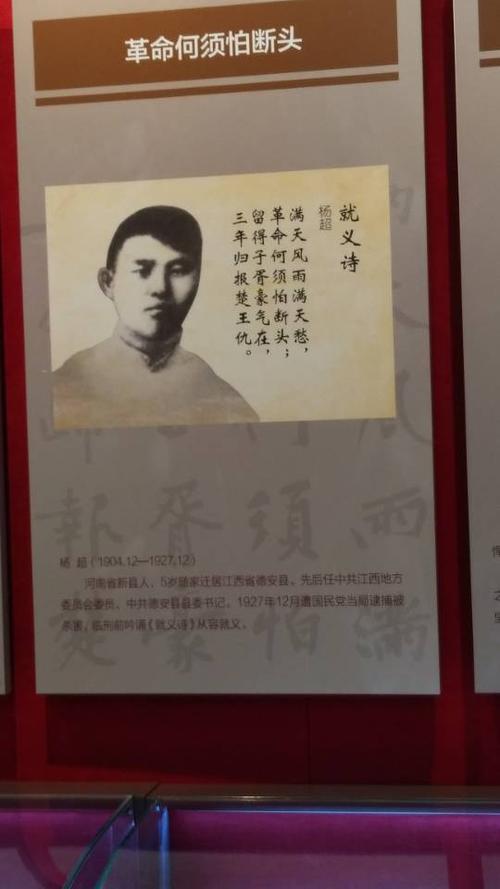 革命何须怕断头
就义诗
杨超
满天风雨满天愁，
革命何须怕断头；
留得子胥豪气在，
三年归报楚王仇。
杨 超（1904.12—1927.12）
河南省新县人，5岁随家迁居江西省德安县。先后任中共江西地方
委员会委员、中共德安县县委书记。1927年12月遭国民党当局逮捕被
杀害，临刑前吟诵《就义诗》从容就义。